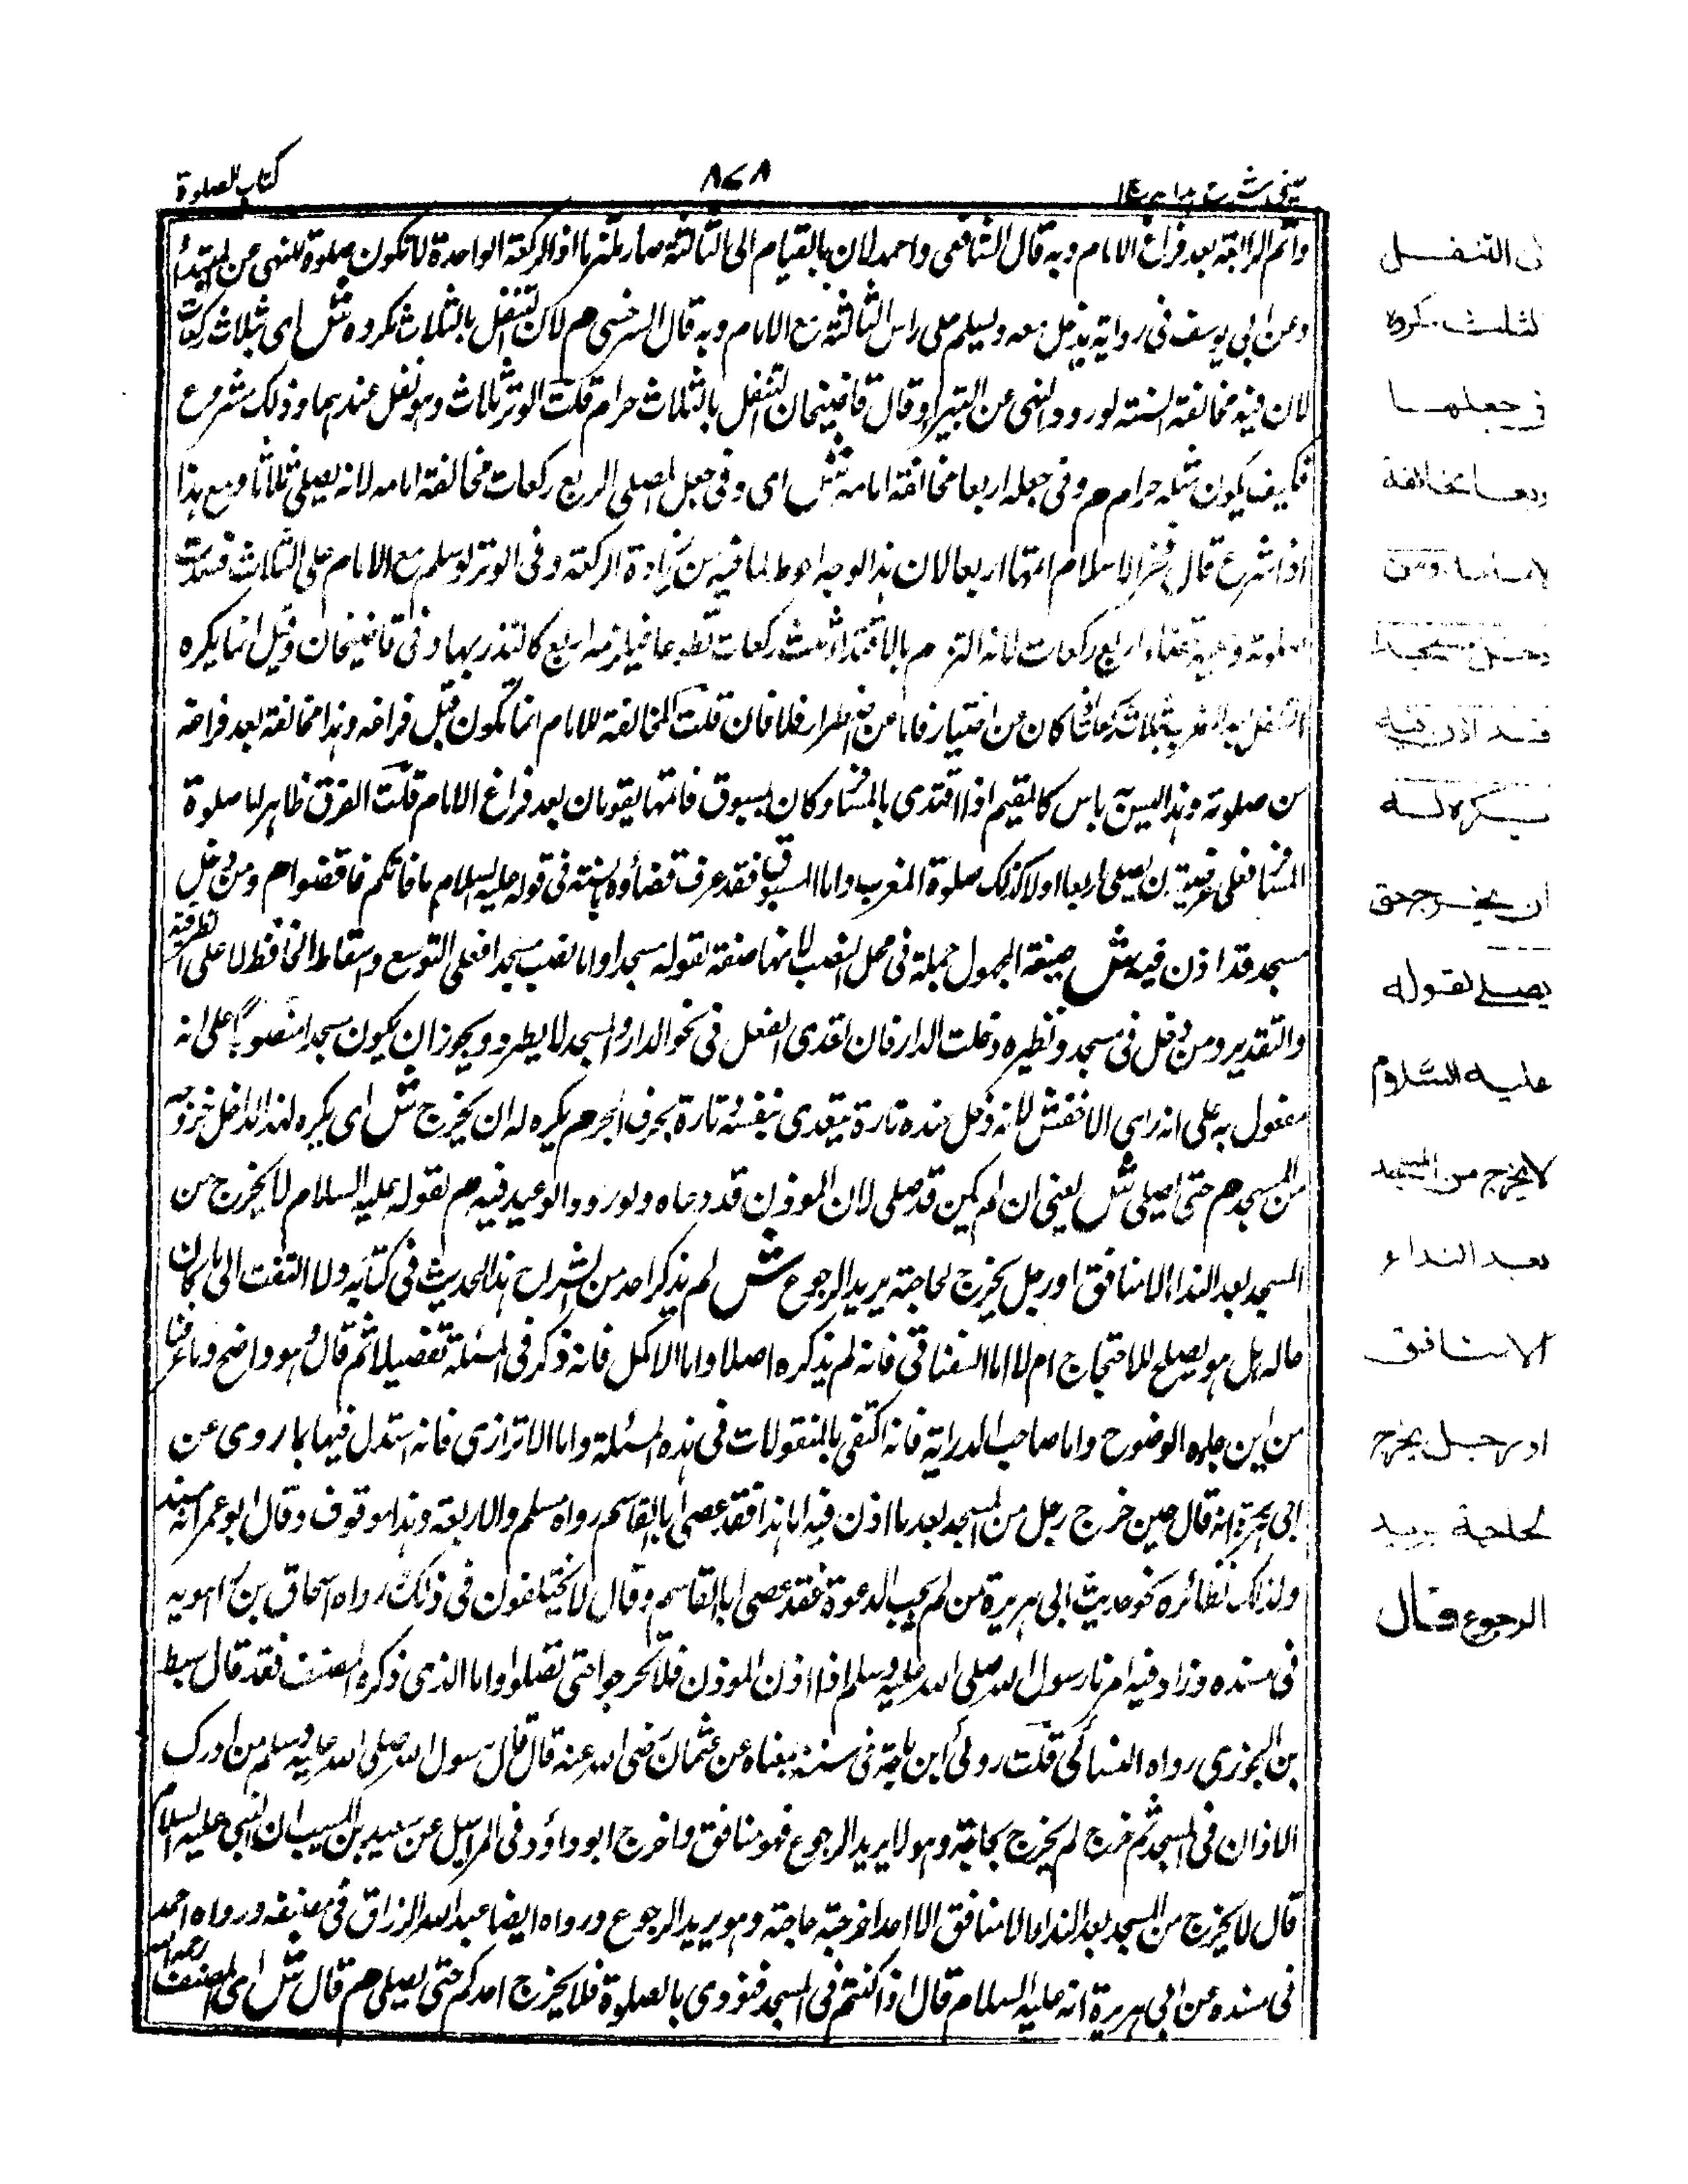 كتاب الصلوة
٨٧٨
عينى شرح هدايه ج ١
واتم الرابعة بعد فراغ الامام وبه قال الشافعى واحمد لان بالقيام الى الثالثة صار ملتزما اذ الركعة الواحدة لا تكون صلوة للنهى عن البتيراء
وعن ابى يوسف فى رواية يدخل معه ويسلم على راس الثالثة مع الامام وبه قال السرخسى م لان التنفل بالثلاث مكروه ش اى بثلاث ركعات
لان فيه مخالفة السنة لورود النهى عن البتيراء وقال قاضيخان التنفل بالثلاث حرام قلت الوتر ثلاث وهو نفل عندهما وذلك مشروع
فكيف يكون مثله حرام م وفى جعله اربعا مخالفة امامه ش اى وفى جعل المصلى اربع ركعات مخالفة امامه لانه يصلى ثلاثا ومع هذا
اذا شرع قال فخر الاسلام اتمها اربعا لان هذا الوجه احوط لما فيه من زيادة الركعة وفى الوتر لو سلم مع الامام على الثلاث فسدت
صلوته وعليه قضاء اربع ركعات لانه التزم بالاقتداء ثلث ركعات تطوعا فيلزمه اربع كالنذر بها وفى قاضيخان وقيل انما يكره
التنفل بثلاث ركعات اذا كان عن اختيار فاما عن اضطرار فلا فان قلت المخالفة للامام انما تكون قبل فراغه وهذا مخالفة بعد فراغه
من صلوته وهذا ليس به باس كالمقيم اذا اقتدى بالمسافر وكان المسبوق فانهما يقومان بعد فراغ الامام قلت الفرق ظاهر لان صلوة
المسافر فعلى عرضية بن يصلى اربعا اولا كذلك صلوة المغرب واما المسبوق فقد عرف قضاؤه بالسنة فى قوله عليه السلام ما فاتكم فاقضوا م ومن دخل
مسجدا قد اذن فيه ش صيغة المجهول جملة فى محل النصب لانها صفة لقوله مسجدا وانما نصب مسجدا فعلى التوسع واسقاط الخافض لا على الظرفية
والتقدير ومن دخل فى مسجد ونظيره دخلت الدار فان تعدى الفعل فى نحو الدار والمسجد لا يطرد ويجوز ان يكون مسجدا منصوبا على انه
مفعول به على انه راى الاخفش لانه دخل عنده تارة يتعدى بنفسه تارة بحرف الجر م يكره له ان يخرج ش اى يكره لهذا الداخل خروجه
من المسجد م حتى يصلى ش يعنى ان لم يكن قد صلى لان الموذن قد دعاه ولورود الوعيد فيه م لقوله عليه السلام لا يخرج من
المسجد بعد النداء الا منافق او رجل يخرج لحاجة يريد الرجوع ش لم يذكر احد من الشراح هذا الحديث فى كتابه ولا التفت الى ما كان
حاله هل هو يصلح للاحتجاج ام لا اما السغناقى فانه لم يذكره اصلا واما الاكمل فانه ذكر فى المسئلة تفصيلا ثم قال وهو واضح وما عرفنا
من اين جاءه الوضوح واما صاحب الدراية فانه اكتفى بالمنقولات فى هذه المسئلة واما الاترازى فانه استدل فيها بما روى عن
ابى هريرة انه قال حين خرج رجل من المسجد بعد ما اذن فيه اما هذا فقد عصى ابا القاسم رواه مسلم والاربعة وهذا موقوف وقال ابو عمر انه مسند
ولذلك نظائره كنحو حديث ابى هريرة من لم يجب الدعوة فقد عصى ابا القاسم وقال لا يختلفون فى ذلك رواه اسحاق بن راهويه
فى مسنده وزاد فيه امرنا رسول الله صلى الله عليه وسلم اذا اذن الموذن فلا تخرجوا حتى تصلوا واما الذى ذكره المصنف فقد قال سبط
بن الجوزى رواه النسائى قلت روى ابن ماجة فى سننه بمعناه عن عثمان رضى الله عنه قال قال رسول الله صلى الله عليه وسلم من ادرك
الاذان فى المسجد ثم خرج لم يخرج لحاجة وهو لا يريد الرجوع فهو منافق واخرج ابو داؤد فى المراسيل عن سعيد بن المسيب ان النبى عليه السلام
قال لا يخرج من المسجد بعد النداء الا منافق الا احد اخرجته حاجة وهو يريد الرجوع ورواه ايضا عبد الرزاق فى مصنفه ورواه احمد
فى مسنده عن ابى هريرة انه عليه السلام قال اذا كنتم فى المسجد فنودى بالصلوة فلا يخرج احدكم حتى يصلى م قال ش اى المصنف رحمه الله
لان التنفل
لثلث مكروه
فى جعلها
اربعا مخالفة
لامامه ومن
دخل مسجدا
قد اذن فيه
يكره له
ان يخرج حتى
يصلى لقوله
عليه السلام
لا يخرج من المسجد
بعد النداء
الا منافق
او رجل يخرج
لحاجة يريد
الرجوع قال